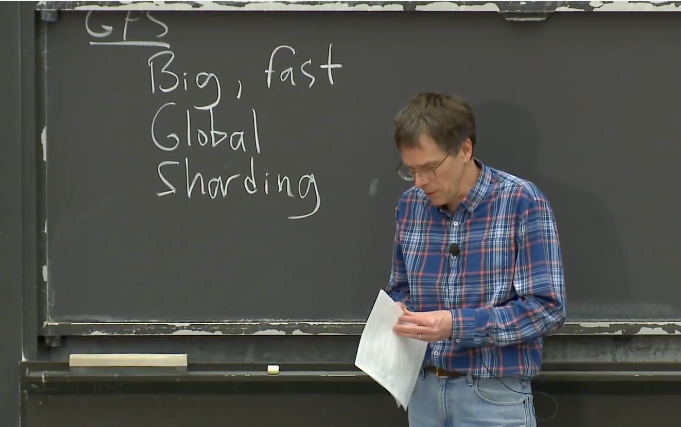 GFS
Big, fast
Global
Sharding